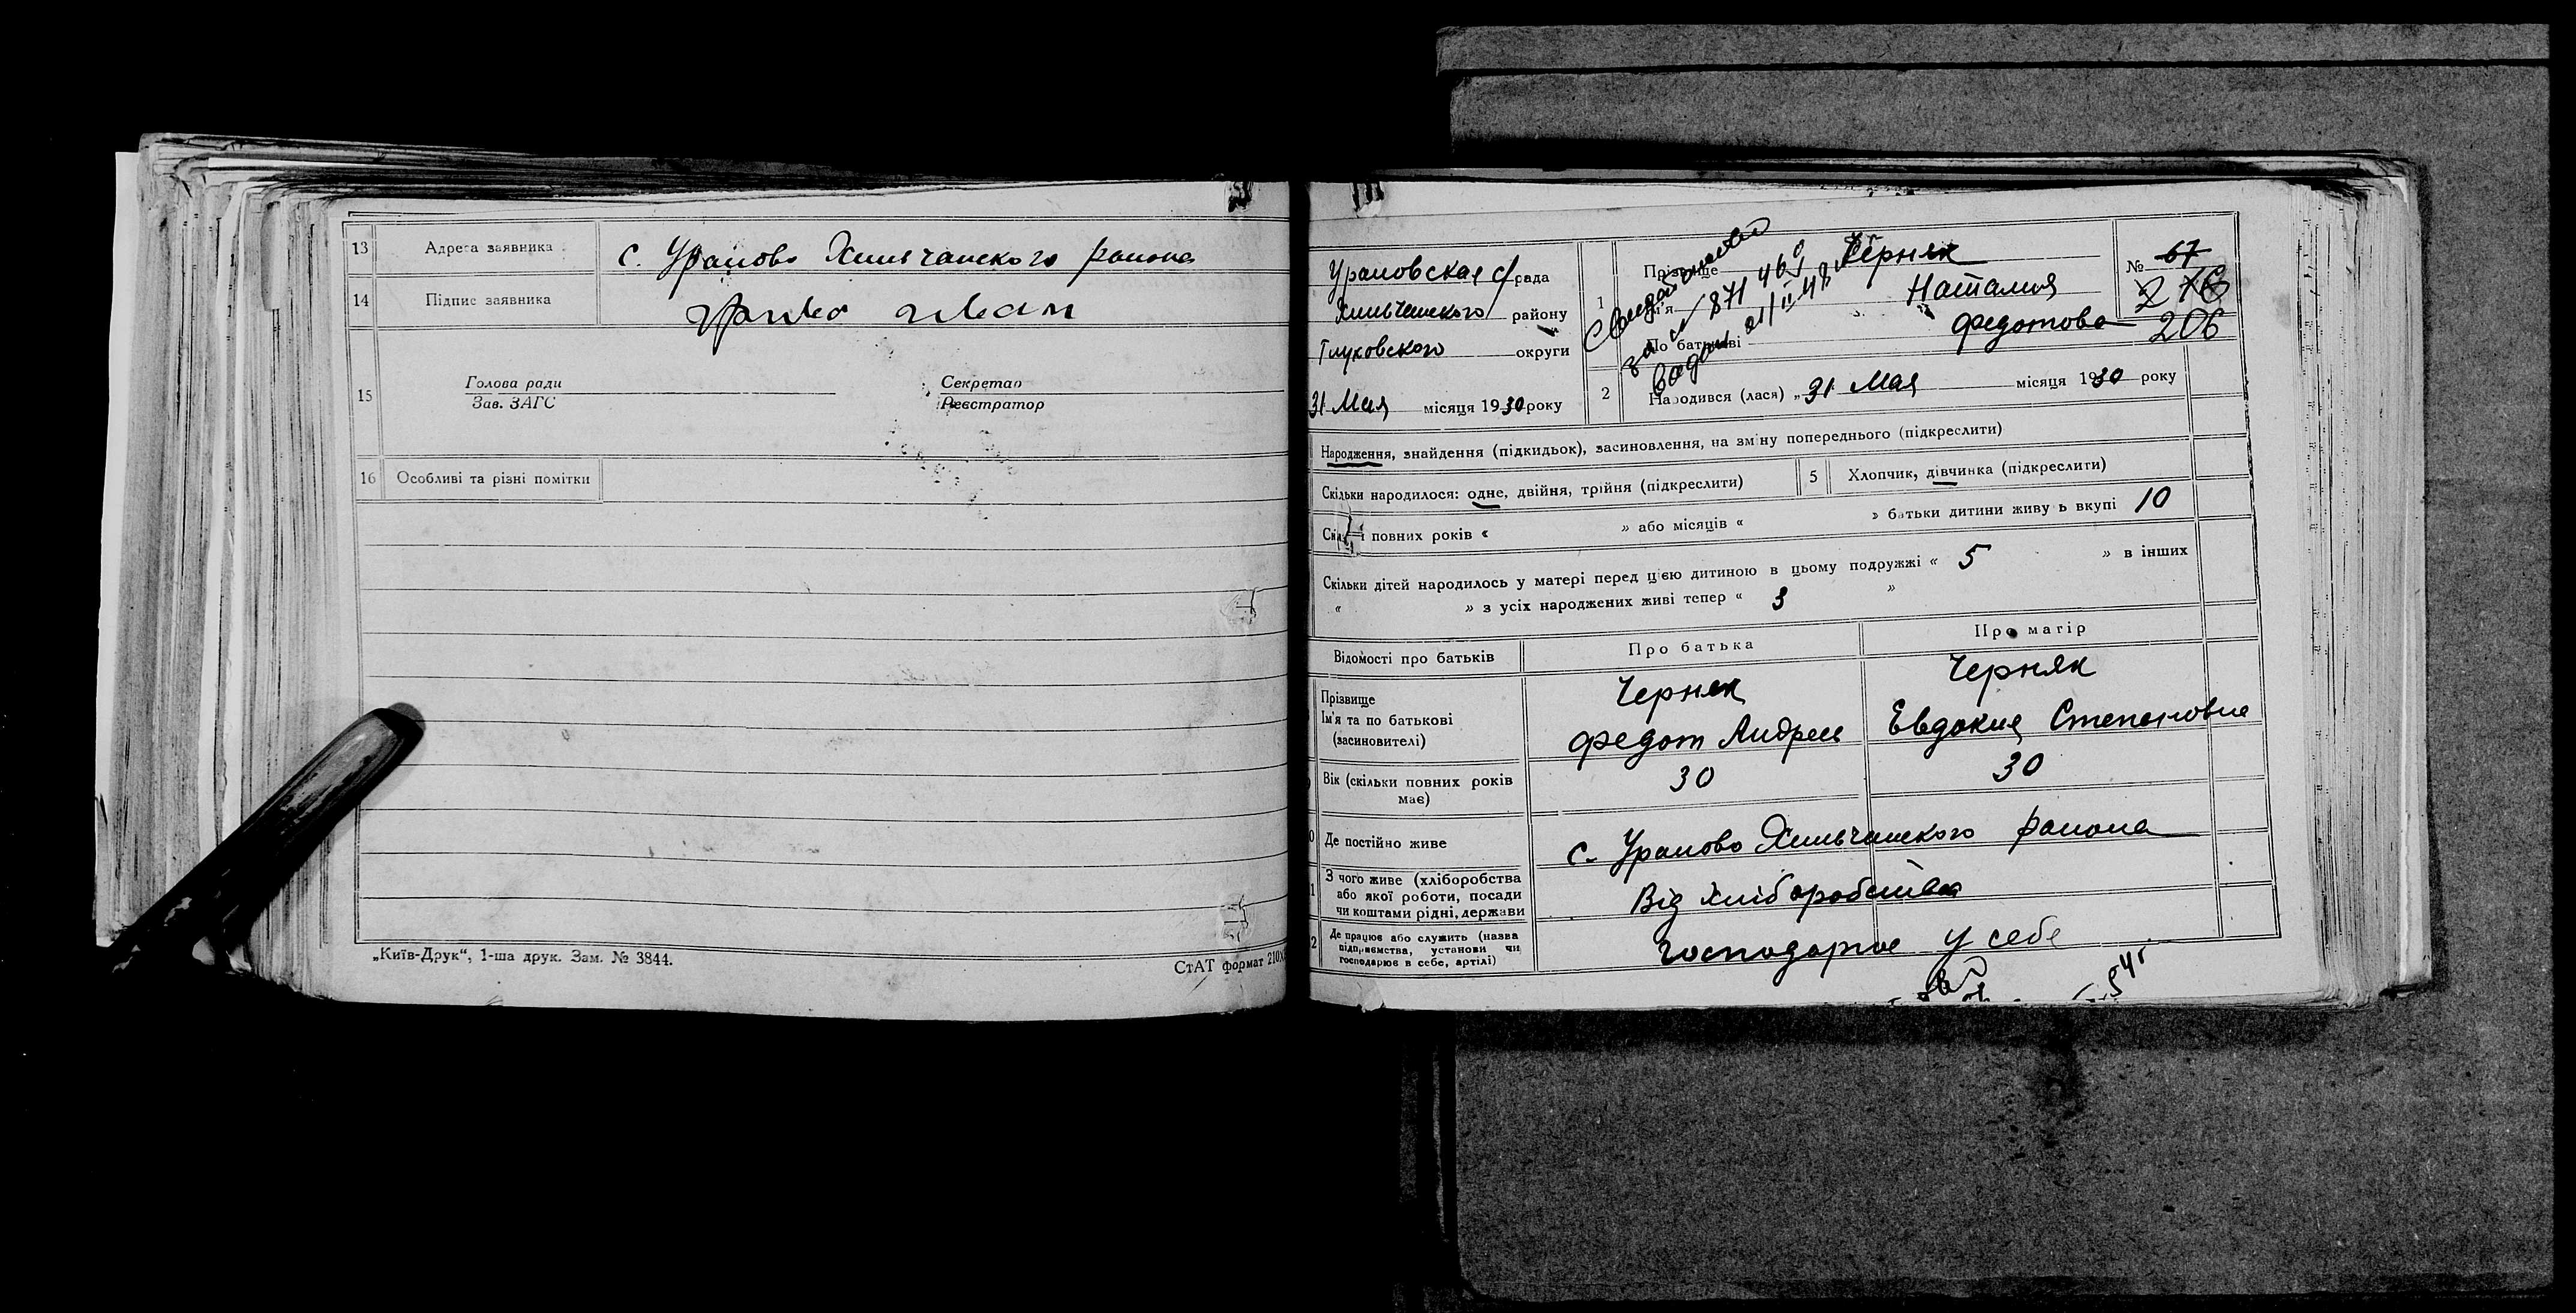 13 Адреса заявника с. Ураково Хильчанского района
14 Підпис заявника
15 Голова ради Секретар
Зав. ЗАГС Реєстратор
16 Особливі та різні помітки
„Київ-Друк“, 1-ша друк. Зам. № 3844.
СтАТ формат 210
Ураковская с/рада
Хильчанского району
Глуховского округи
31 Мая місяця 1930 року
1 Прізвище Черняк
Ім'я Наталия
По батькові Федотова
№ 67
276
206
Свидетельство
871460
21/II 48
2 Народився (лася) „31 Мая місяця 1930 року
Народження, знайдення (підкидьок), засиновлення, на зміну попереднього (підкреслити)
Скільки народилося: одне, двійня, трійня (підкреслити) 5 Хлопчик, дівчинка (підкреслити)
повних років « » або місяців « » батьки дитини живуть вкупі 10
Скільки дітей народилось у матері перед цією дитиною в цьому подружжі « 5 » в інших
« » з усіх народжених живі тепер « 3 »
Відомості про батьків Про батька Про матір
Прізвище Черняк Черняк
Ім'я та по батькові Федот Андрее Евдокия Степановна
(засновителі)
Вік (скільки повних років має) 30 30
Де постійно живе с. Ураково Хильчанского района
З чого живе (хліборобства або якої роботи, посади чи коштами рідні, держави Від хліборобства
Де працює або служить (назва підприємства, установи чи господарює в себе, артілі) господарює у себе
54 г